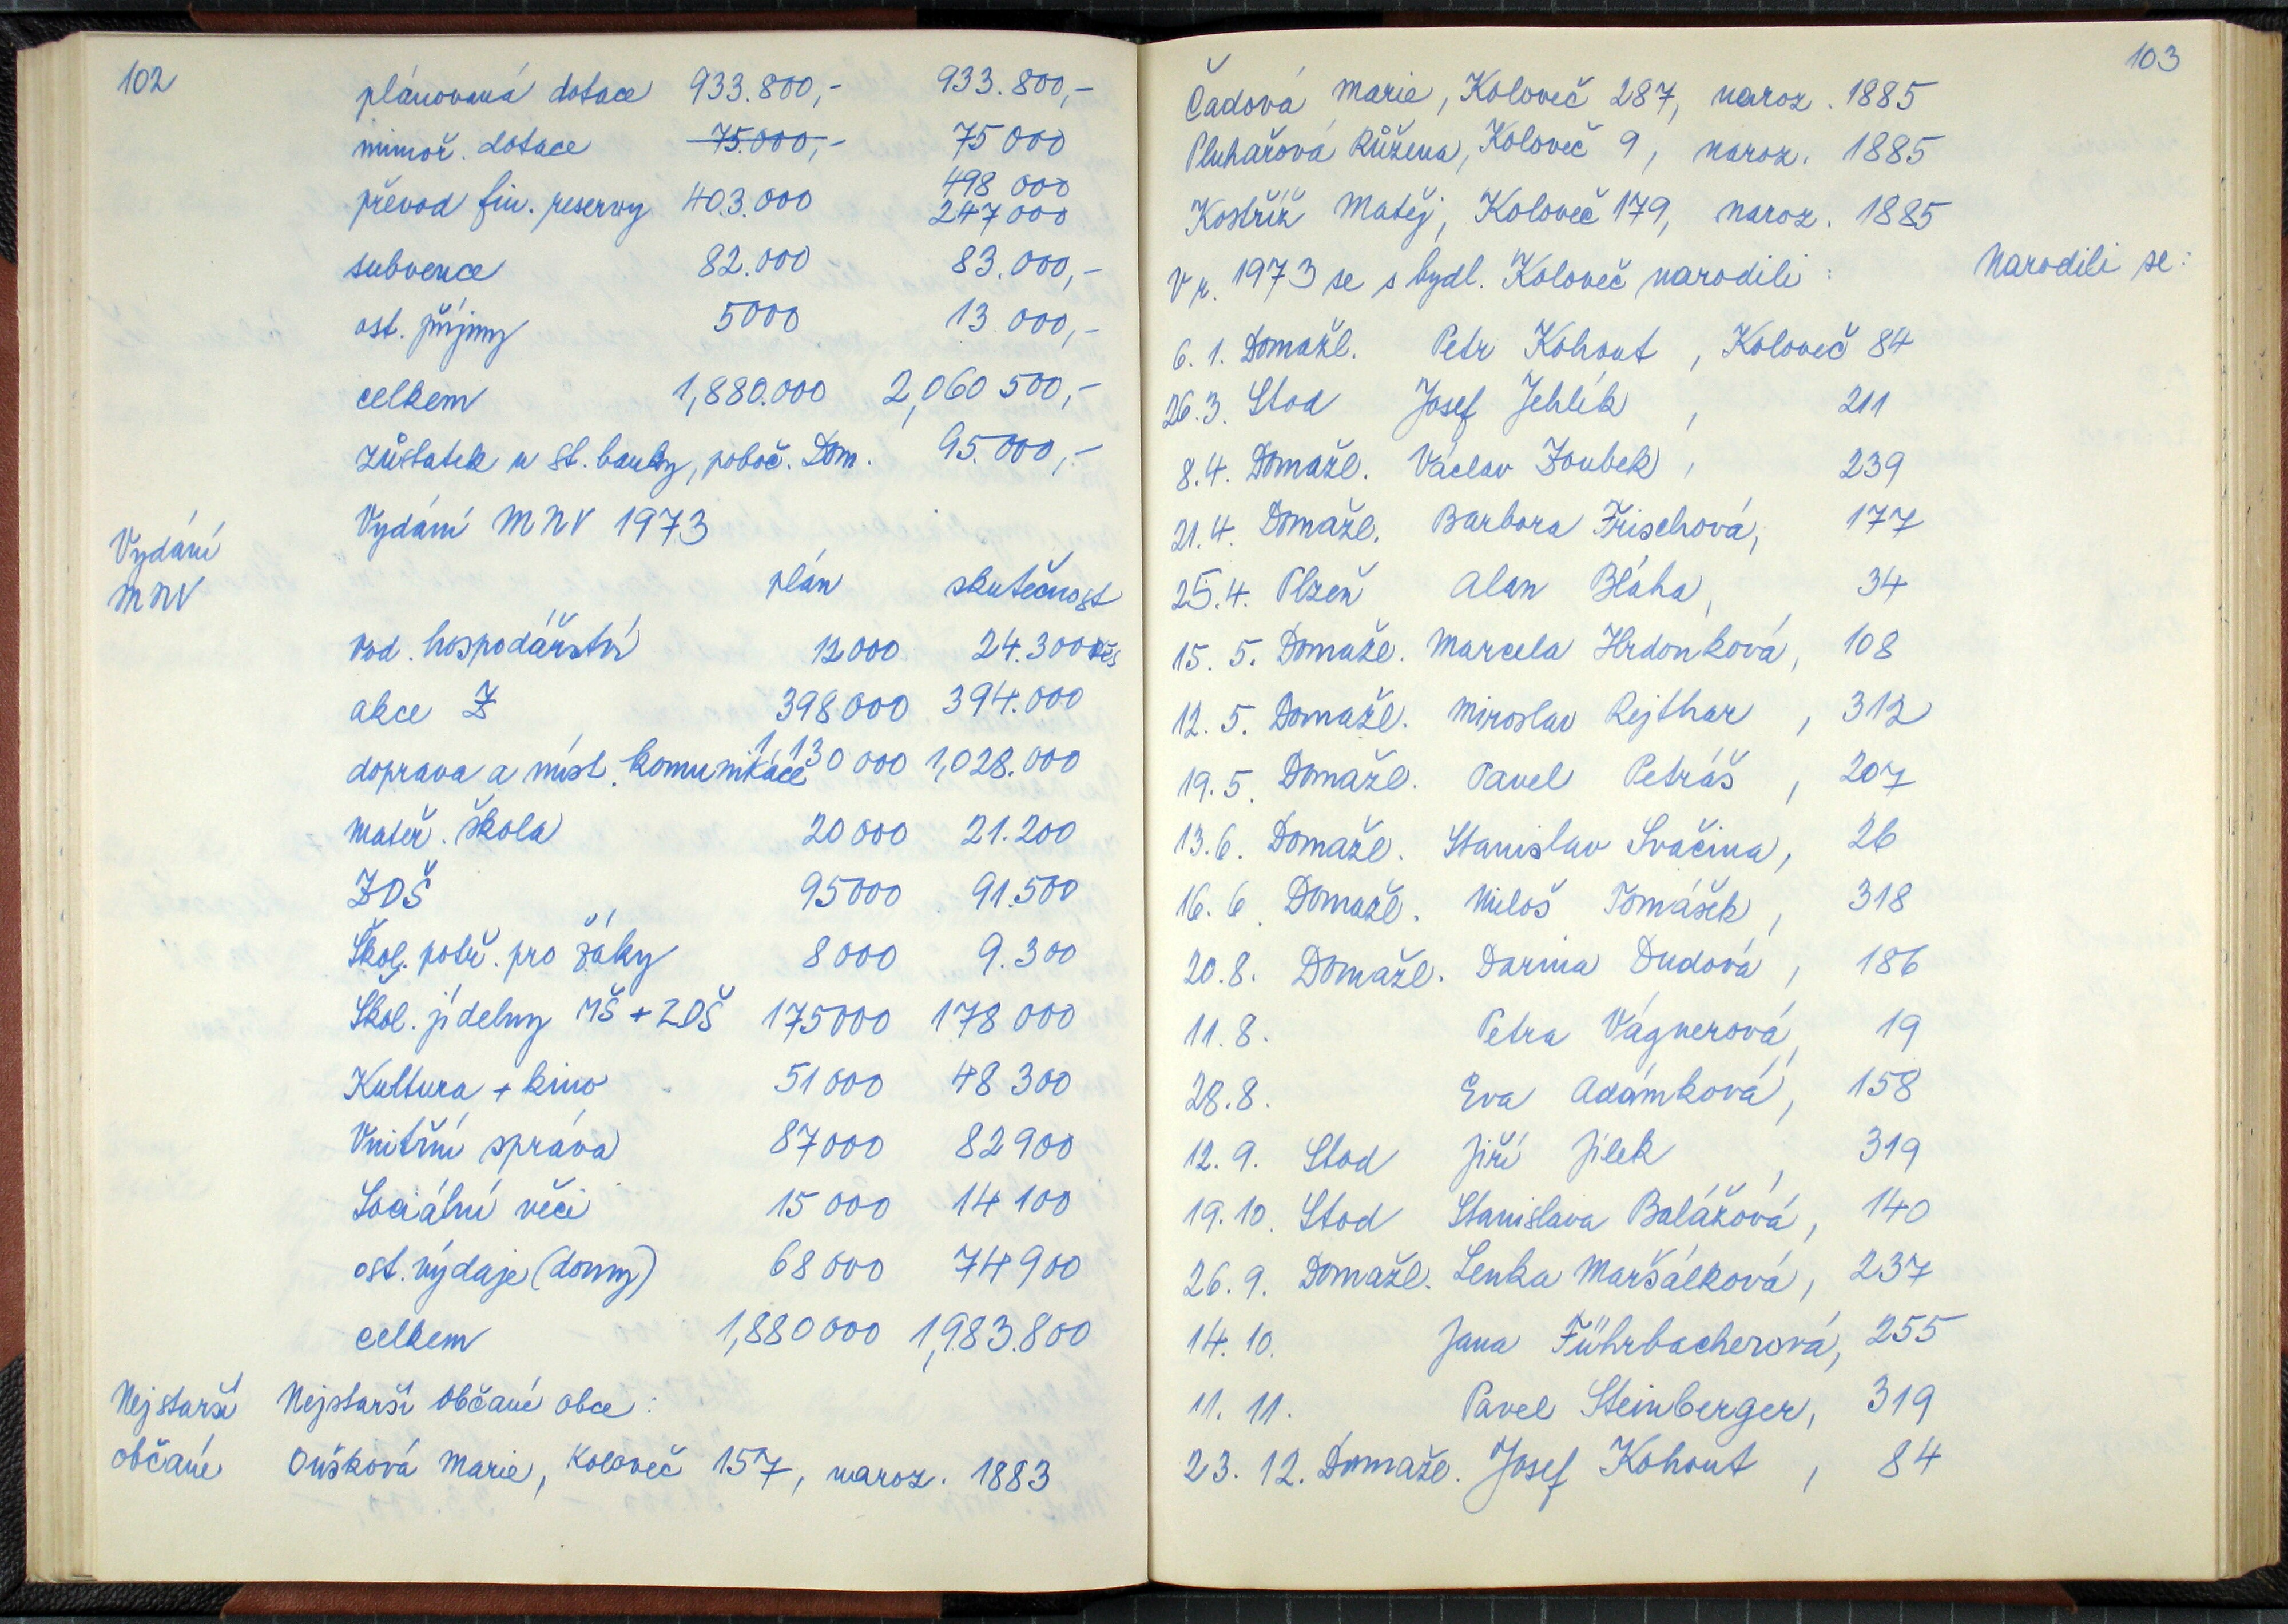 102
plánovaná dotace 933.800,- 933.800,-
mimoř. dotace 75.000,- 75 000
převod fin. reservy 403.000 498 000
247 000
subvence 82.000 83.000,-
ost. příjmy 5000 13 000,-
celkem 1,880.000 2,060 500,-
zůstatek u st. banky, poboč. Dom. 95.000,-
Vydání MNV
Vydání MNV 1973
plán skutečnost
vod. hospodářství 12000 24.300 Kčs
akce Z 398 000 394.000
doprava a míst. komunikace 1,130 000 1,028.000
mateř. škola 20 000 21.200
ZDŠ 95000 91.500
Škol. potř. pro žáky 8 000 9.300
Škol. jídelny MŠ + ZDŠ 175000 178 000
Kultura + kino 51 000 48 300
Vnitřní správa 87000 82900
Sociální věci 15 000 14 100
ost. výdaje (domy) 68 000 74 900
celkem 1,880 000 1,983.800
Nejstarší občané
Nejstarší občané obce:
Oušková Marie, Koloveč 157, naroz. 1883
103
Čadová Marie, Koloveč 287, naroz. 1885
Pluhařová Růžena, Koloveč 9, naroz. 1885
Kostříž Matěj, Koloveč 179, naroz. 1885
V r. 1973 se s bydl. Koloveč narodili:
Narodili se:
6. 1. Domažl. Petr Kohout, Koloveč 84
26. 3. Stod Josef Jehlík, 211
8. 4. Domažl. Václav Zoubek, 239
21. 4. Domažl. Barbora Frischová, 177
25. 4. Plzeň Alan Bláha, 34
15. 5. Domažl. Marcela Hrdonková, 108
12. 5. Domažl. Miroslav Rejthar, 312
19. 5. Domažl. Pavel Petráš, 207
13. 6. Domažl. Stanislav Svačina, 26
16. 6. Domažl. Miloš Tomášek, 318
20. 8. Domažl. Darina Dudová, 186
11. 8. Petra Vágnerová, 19
28. 8. Eva Adámková, 158
12. 9. Stod Jiří Jílek, 319
19. 10. Stod Stanislava Balážová, 140
26. 9. Domažl. Lenka Maršálková, 237
14. 10. Jana Führbacherová, 255
11. 11. Pavel Steinberger, 319
23. 12. Domažl. Josef Kohout, 84